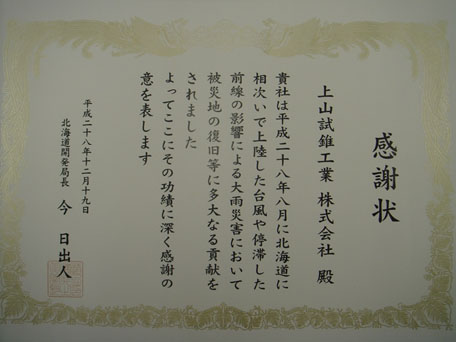 感謝状
上山試錐工業 株式会社 殿
貴社は平成二十八年八月に北海道に
相次いで上陸した台風や停滞した
前線の影響による大雨災害において
被災地の復旧等に多大なる貢献を
されました
よってここにその功績に深く感謝の
意を表します
平成二十八年十二月十九日
北海道開発局長 今 日出人